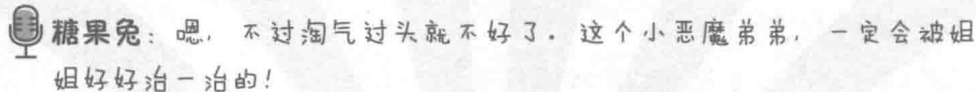 糖果兔：嗯，不过淘气过头就不好了．这个小恶魔弟弟，一定会被姐
姐好好治一治的！